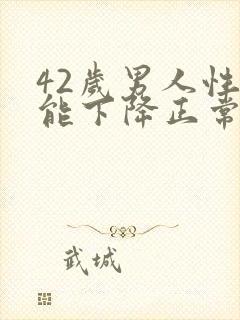 42岁男人性
能下降正常
武城